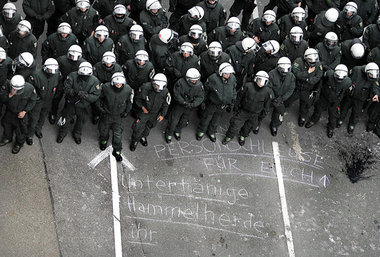 PERSONALAUSWEISE
FÜR EUCH!
Untertänige
Hammelherde
ihr